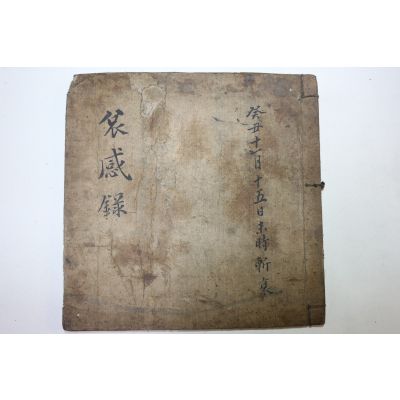 癸丑十一月十五日未時 斬衰
哀感錄